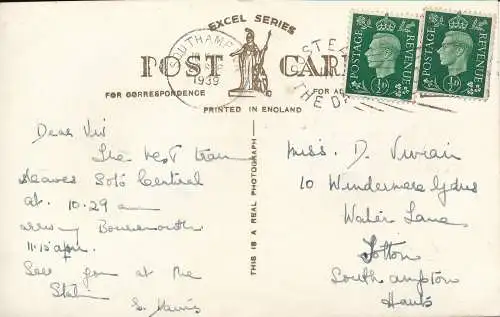 EXCEL SERIES
POST CARD
FOR CORRESPONDENCE
FOR AD
PRINTED IN ENGLAND
SOUTHAMPTON
1939
STEA
THE D
POSTAGE
REVENUE
½D
POSTAGE
REVENUE
½D
THIS IS A REAL PHOTOGRAPH
Dear Viv
The next train
leaves Soto Central
at 10.29 am
arriving Bournemouth
11.15 am.
See you at the
Station
Miss. D. Vivian
10 Windermere Gdns
Water Lane
Totton
Southampton
Hants